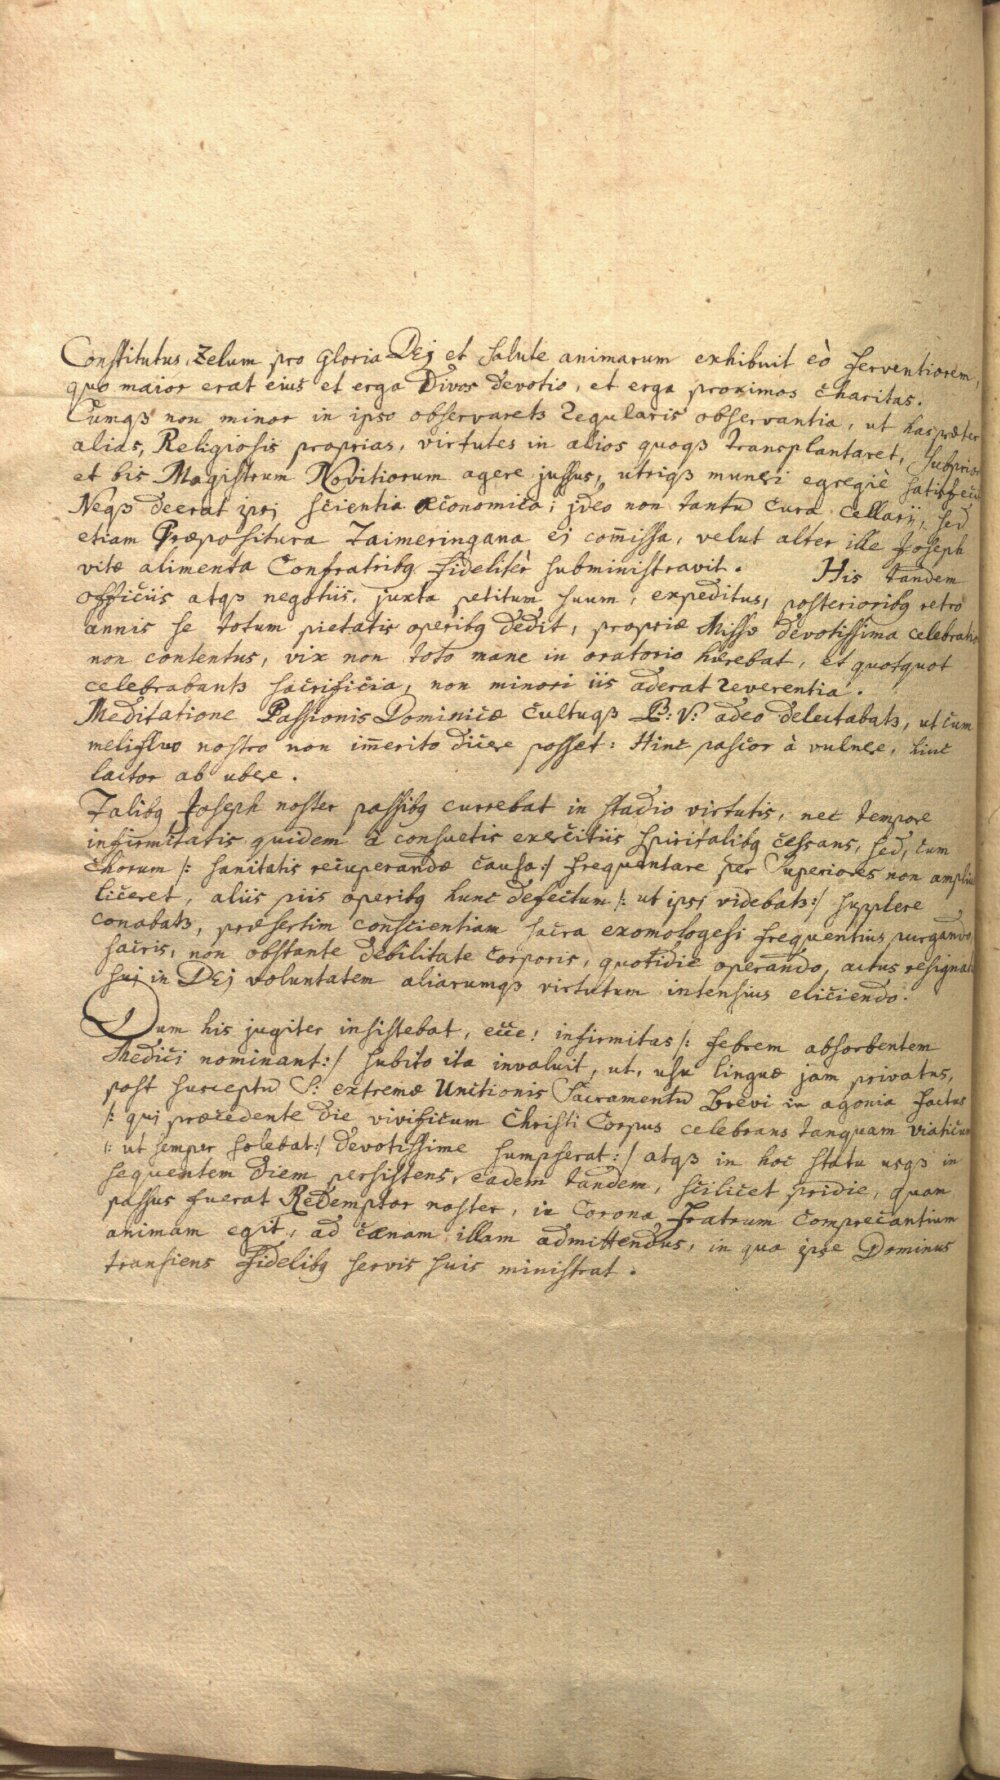 Constitutus, Zelum pro Gloria DEj et salute animarum exhibuit eò ferventiorem,
quo maior erat eius et erga Divos devotio, et erga proximos charitas.
Cumqꝫ non minor in ipso observaretꝫ regularis observantia, ut has præter
alias, Religiosis proprias, virtutes in alios quoqꝫ transplantaret, Subprior
et bis Magistrum Novitiorum agere jussus, utriqꝫ muneri egregiè satisfecit
Neqꝫ deerat ipsj scientia œconomica; jdeo non tantũ Cura Cellarij, sed
etiam Præpositura Taimeringana ej com̃issa, velut alter ille Joseph
vitæ alimenta Confratribꝫ fidelitèr subministravit. His tandem
officiis atqꝫ negotiis, juxta petitum suum, expeditus, posterioribꝫ retrò
annis se totum pietatis operibꝫ dedit, propriæ Missæ devotissima celebratione
non contentus, vix non toto mane in oratorio hærebat, et quotquot
celebrabantꝫ sacrificia, non minori iis aderat reverentia.
Meditatione Passionis Dominicæ Cultuqꝫ B: V: adeo delectabatꝫ, ut cum
melifluo nostro non im̃erito dicere posset: Hinc pascor à vulnere, hinc
lactor ab ubere.
Talibꝫ Joseph noster passibꝫ currebat in stadio virtutis, nec tempore
infirmitatis quidem à consuetis exercitiis spiritalibꝫ cessans, sed, cum
Chorum /: sanitatis recuperandæ causa :/ frequentare per Superiores non amplius
liceret, aliis piis operibꝫ hunc defectum /: ut ipsi videbatꝫ :/ supplere
conabatꝫ, præsertim conscientiam sacra exomologesi frequentius purgando
sacris, non obstante debilitate corporis, quotidie operando, actus resignatæ
suj in DEj voluntatem aliarumqꝫ virtutum intensius eliciendo.
Dum his jugiter insistebat, ecce! infirmitas /: febrem absorbentem
Medici nominant :/ subito ita invaluit, ut, usu linguæ jam privatus,
post susceptũ S: extremæ Unctionis Sacramentũ brevi in agonia factus
/: quj præcedente die vivificum Christi Corpus celebrans tanquam viaticum
/: ut semper solebat :/ devotissime sumpserat :/ atqꝫ in hoc statu usqꝫ in
sequentem diem persistens, eadem tandem, scilicet pridie, quam
passus fuerat Redemptor noster, in Corona fratrum comprecantium
animam egit, ad cænam illam admittendus, in qua ipse Dominus
transiens fidelibꝫ servis suis ministrat.